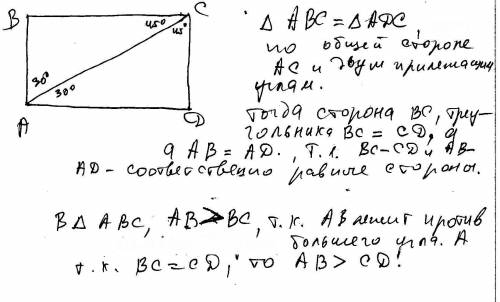 B
C
45°
45°
30°
30°
A
D
Δ ABC = Δ ADC
по общей стороне
AC и двум прилежащим
углам.
Тогда сторона BC, треу-
гольника BC = CD, а
а AB = AD., т.к. BC-CD и AB-
AD - соответственно равные стороны.
В Δ ABC, AB > BC, т.к. AB лежит против
большего угла. A
т.к. BC = CD, то AB > CD!